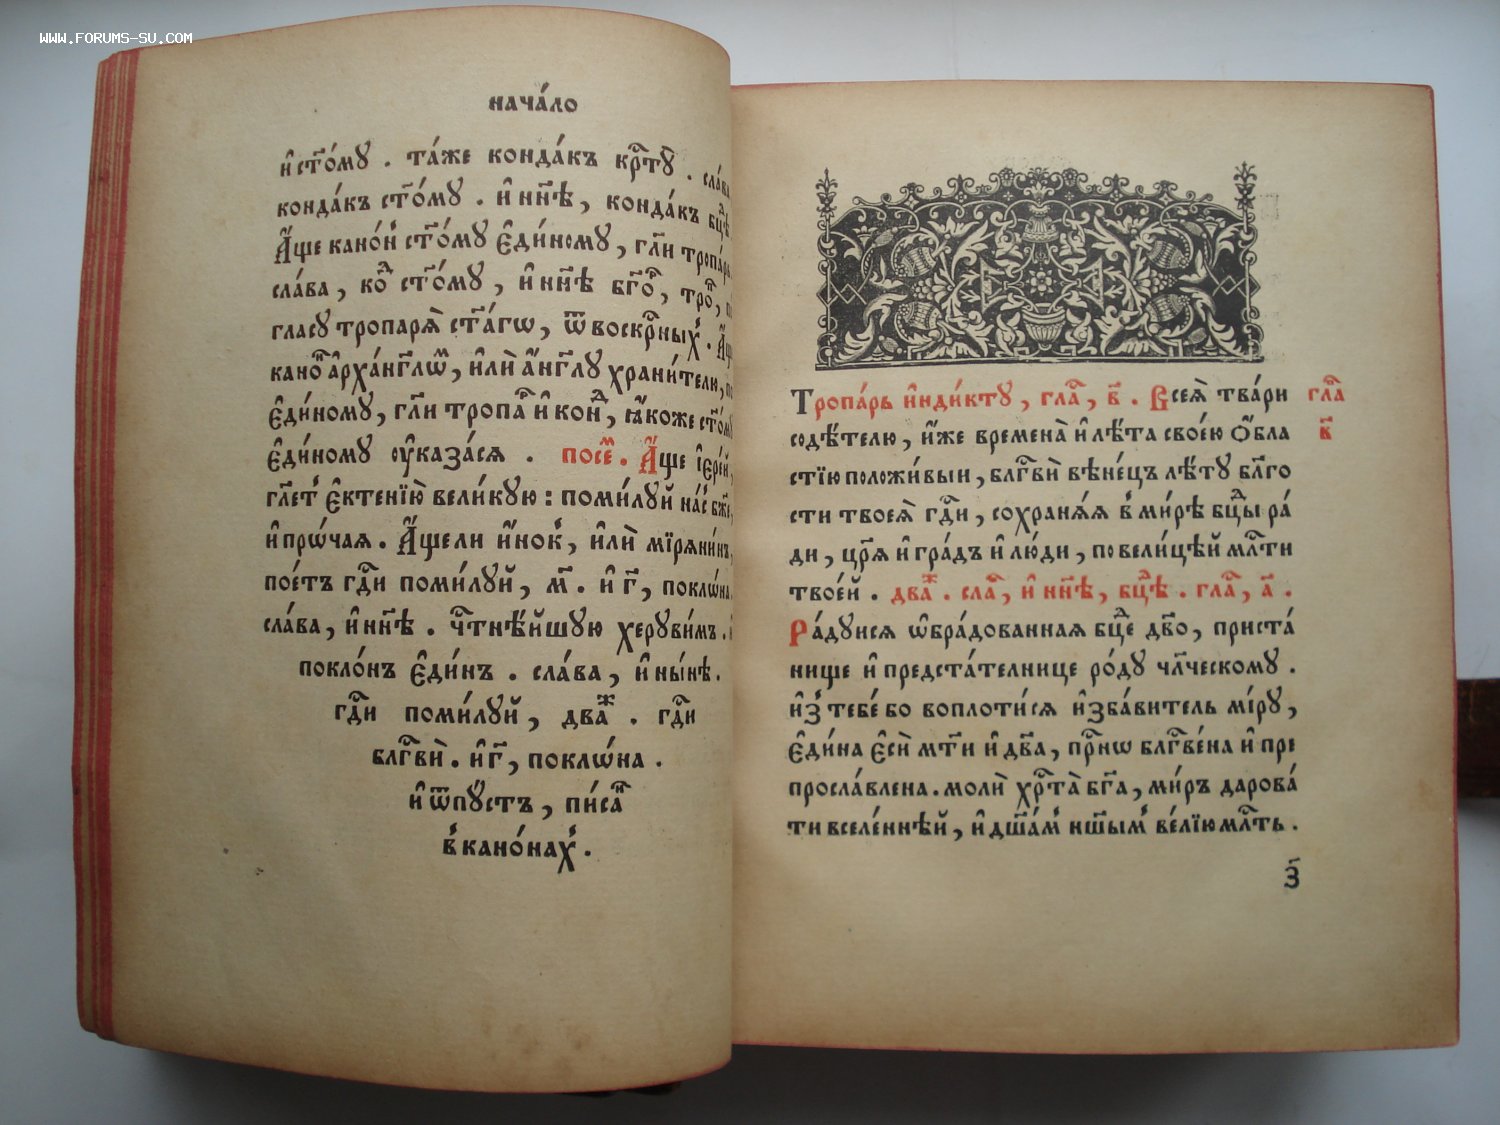 WWW.FORUMS-SU.COM
нача́ло
и҆ ст҃о́мꙋ . та́же конда́къ крⷭ҇тꙋ̀ . сла́ва
конда́къ ст҃о́мꙋ . и҆ нн҃ѣ , конда́къ бцⷣѣ
А҆́ще кано́н ст҃о́мꙋ є҆ди́номꙋ , гл҃и тропа́рь
сла́ва , коⷣ ст҃о́мꙋ , и҆ нн҃ѣ бг҃оⷪ , троⷫ ,
гласꙋ тропарѧ̀ ст҃а́гѡ , ѿ воскрⷭ҇ныхъ .
каноⷩ а҆рха́нг҃лѡⷨ , и҆лѝ а҆́нг҃лꙋ храни́телю ,
є҆ди́номꙋ , гл҃и тропаⷬ и҆ конⷣ , ꙗ҆́коже ст҃о́мꙋ
є҆ди́номꙋ ᲂу҆каза́сѧ . посеⷨ . А҆́ще і҆ере́й ,
гл҃етъ є҆ктенїю̀ великꙋю : поми́лꙋй на́съ бж҃е ,
и҆ прѡ́чаѧ . А҆́щели и҆́нокъ , и҆лѝ мїрѧни́нъ ,
пое́тъ гдⷭ҇и поми́лꙋй , м҃ . и҆ г҃ , поклѡ́на
сла́ва , и҆ нн҃ѣ . чⷭ҇тнѣ́йшꙋю херꙋви́мъ .
покло́нъ є҆ди́нъ . сла́ва , и҆ ны́нѣ .
гдⷭ҇и поми́лꙋй , дваⷤ . гдⷭ҇и
блгⷭ҇вѝ . и҆ г҃ , поклѡ́на .
и҆ ѿпꙋ́стъ , пи́саⷩ
въ кано́нахъ .
Тропа́рь и҆нди́ктꙋ , глаⷭ , в҃ . Всеѧ̀ тва́ри глаⷭ
содѣ́телю , и҆́же времена̀ и҆ лѣ́та свое́ю ѻ҆́бла в҃
стїю положи́выи , блгⷭ҇вѝ вѣне́цъ лѣ́тꙋ бл҃го
сти твоеѧ̀ гдⷭ҇и , сохранѧ́ѧ въ ми́рѣ бцⷣы ра
ди , цр҃ѧ и҆ гра́дъ и҆ лю́ди , повели́цѣй млⷭ҇ти
твое́й . дваⷤ . слаⷡ , и҆ нн҃ѣ , бцⷣѣ . глаⷭ , а҃ .
Ра́дꙋисѧ ѡ҆бра́дованнаѧ бцⷣе дв҃о , приста́
нище и҆ предста́телнице ро́дꙋ чл҃ческомꙋ .
и҆з̾ тебе́ бо воплоти́сѧ и҆зба́витель мі́рꙋ ,
є҆ди́на є҆сѝ мт҃и и҆ дв҃а , прⷭ҇нѡ блгⷭ҇ве́на и҆ пре
просла́влена . молѝ хрⷭ҇та̀ бг҃а , ми́ръ дарова́
ти вселе́ннѣй , и҆ дш҃а́мъ на́шымъ ве́лїю млⷭ҇ть .
з҃